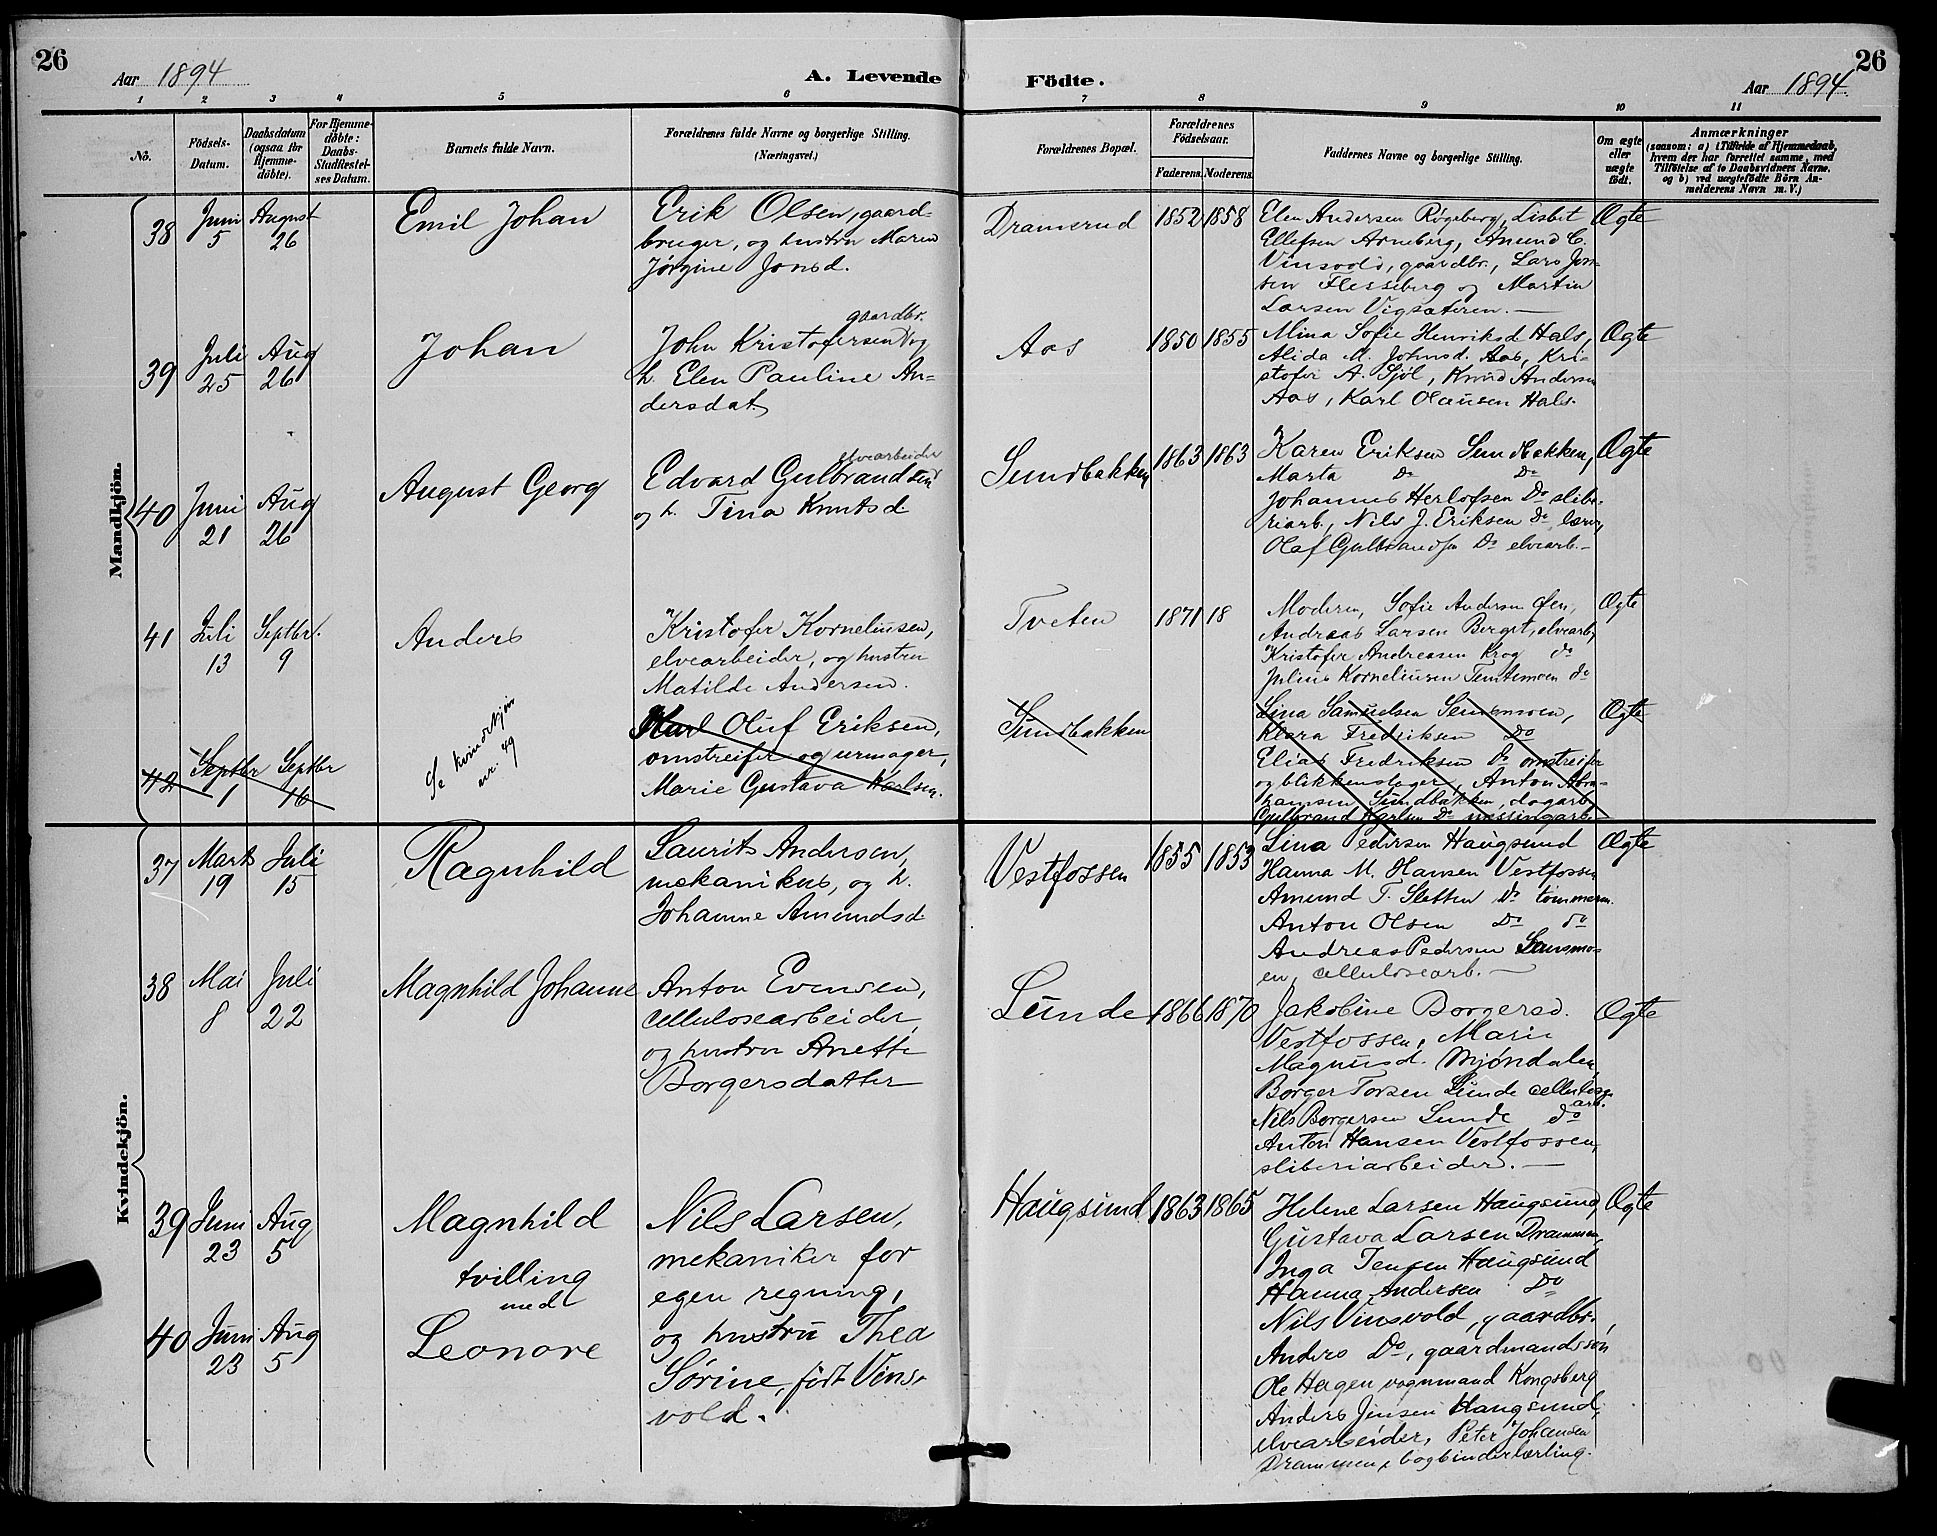 26
Aar 1894
A. Levende
1 2 3 4 5 6
No.
Födsels-Datum.
Daabsdatum (ogsaa for Hjemme-döbte).
For Hjemme-döbte: Daabs-Stadfæstel-ses Datum.
Barnets fulde Navn.
Forældrenes fulde Navne og borgerlige Stilling.
(Næringsvei.)
Mandkjön.
38 Juni 5 August 26
Emil Johan
Erik Olsen, gaard-
bruger, og hustru Maren
Jørgine Jonsd.
39 Juli 25 Aug 26
Johan
gaardbr.
John Kristofersen og
h. Elen Pauline An-
dersdat.
40 Juni 21 Aug 26
August Georg
elvearbeider
Edvard Gulbrandsen
og h. Tina Knutsd.
41 Juli 13 Septbr. 9
Anders
Kristofer Korneliusen,
elvearbeider, og hustru
Matilde Andersen.
42 Septbr 1 Septbr 16
Se kvindekjøn
nr. 49
Karl Oluf Eriksen,
omstreifer og urmager,
Marie Gustava Karlsen.
Kvindekjön.
37 Marts 19 Juli 15
Ragnhild
Laurits Andersen,
mekanikus, og h.
Johanne Amundsd.
38 Mai 8 Juli 22
Magnhild Johanne
Anton Evensen,
cellulosearbeider,
og hustru Anette
Borgersdatter
39 Juni 23 Aug 5
Magnhild
tvilling
med
40 Juni 23 Aug 5
Leonore
Nils Larsen,
mekaniker for
egen regning,
og hustru Thea
Sørine, født Vins-
vold.
26
Födte.
Aar 1894.
7 8 9 10 11
Forældrenes Bopæl.
Forældrenes Födselsaar.
Faderens. Moderens.
Faddernes Navne og borgerlige Stilling.
Om ægte eller uægte födt.
Anmærkninger
(saasom: a) i Tilfælde af Hjemmedaab,
hvem der har forrettet samme, med
Tilföielse af to Daabsvidners Navne,
og b) ved uægtefödte Börn An-
melderens Navn m. V.)
Dramerud 1852 1858
Elen Andersen Røgeberg, Lisbet
Ellefsen Arneberg, Anund C.
Vinsvold, gaardbr., Lars Jen-
sen Flesseberg og Martin
Larsen Vigsæteren.
Ægte
Aas 1850 1855
Mina Sofie Henriksd. Hals,
Alida M. Johnsd. Aas, Kri-
stofer A. Sjøl, Knud Andersen
Aas, Karl Olausen Hals.
Ægte
Sundbakken 1863 1863
Karen Eriksen Sundbakken,
Marta Do Do
Johannes Herlofsen Do slibe-
riarb., Nils J. Eriksen Do
Olaf Gulbrandsen Do elvearb.
Ægte
Tveten 1871 18
Moderen, Sofie Andersen
Andreas Larsen Berget, elvearb,
Kristofer Andreasen Krog do
Julius Korneliusen Temtemoen do
Ægte
Sundbakken
Lina Samuelsen
Klara Fredriksen Do
Elias Fredriksen Do omstreifer
og blikkenslager, Anton Abra-
hamsen Sundbakken, dagarb
Gulbrand Karlsen Do messingarb.
Ægte
Vestfossen 1855 1853
Lina Pedersen Haugsund
Hanna M. Hansen Vestfossen
Amund T. Sletten Do tømmerm.
Anton Olsen Do do
Andreas Pedersen Grinsmo-
en, cellulosearb.
Ægte
Lunde 1866 1870
Jakobine Borgersd.
Vestfossen, Marie
Magnusd. Mjøndalen,
Borger Torsen Lunde cellulose
arb.
Nils Borgersen Lunde do
Anton Hansen Vestfossen,
sliberiarbeider.
Ægte
Haugsund 1863 1865
Helene Larsen Haugsund
Gustava Larsen Drammen,
Inga Jensen Haugsund
Hanna Andersen Do
Nils Vinsvold, gaardbr.,
Anders Do, gaardmandssøn
Ole Hagen vognmand Kongsberg
Anders Jensen Haugsund,
elvearbeider, Peter Johansen
Drammen, bogbinderlærling.
Ægte